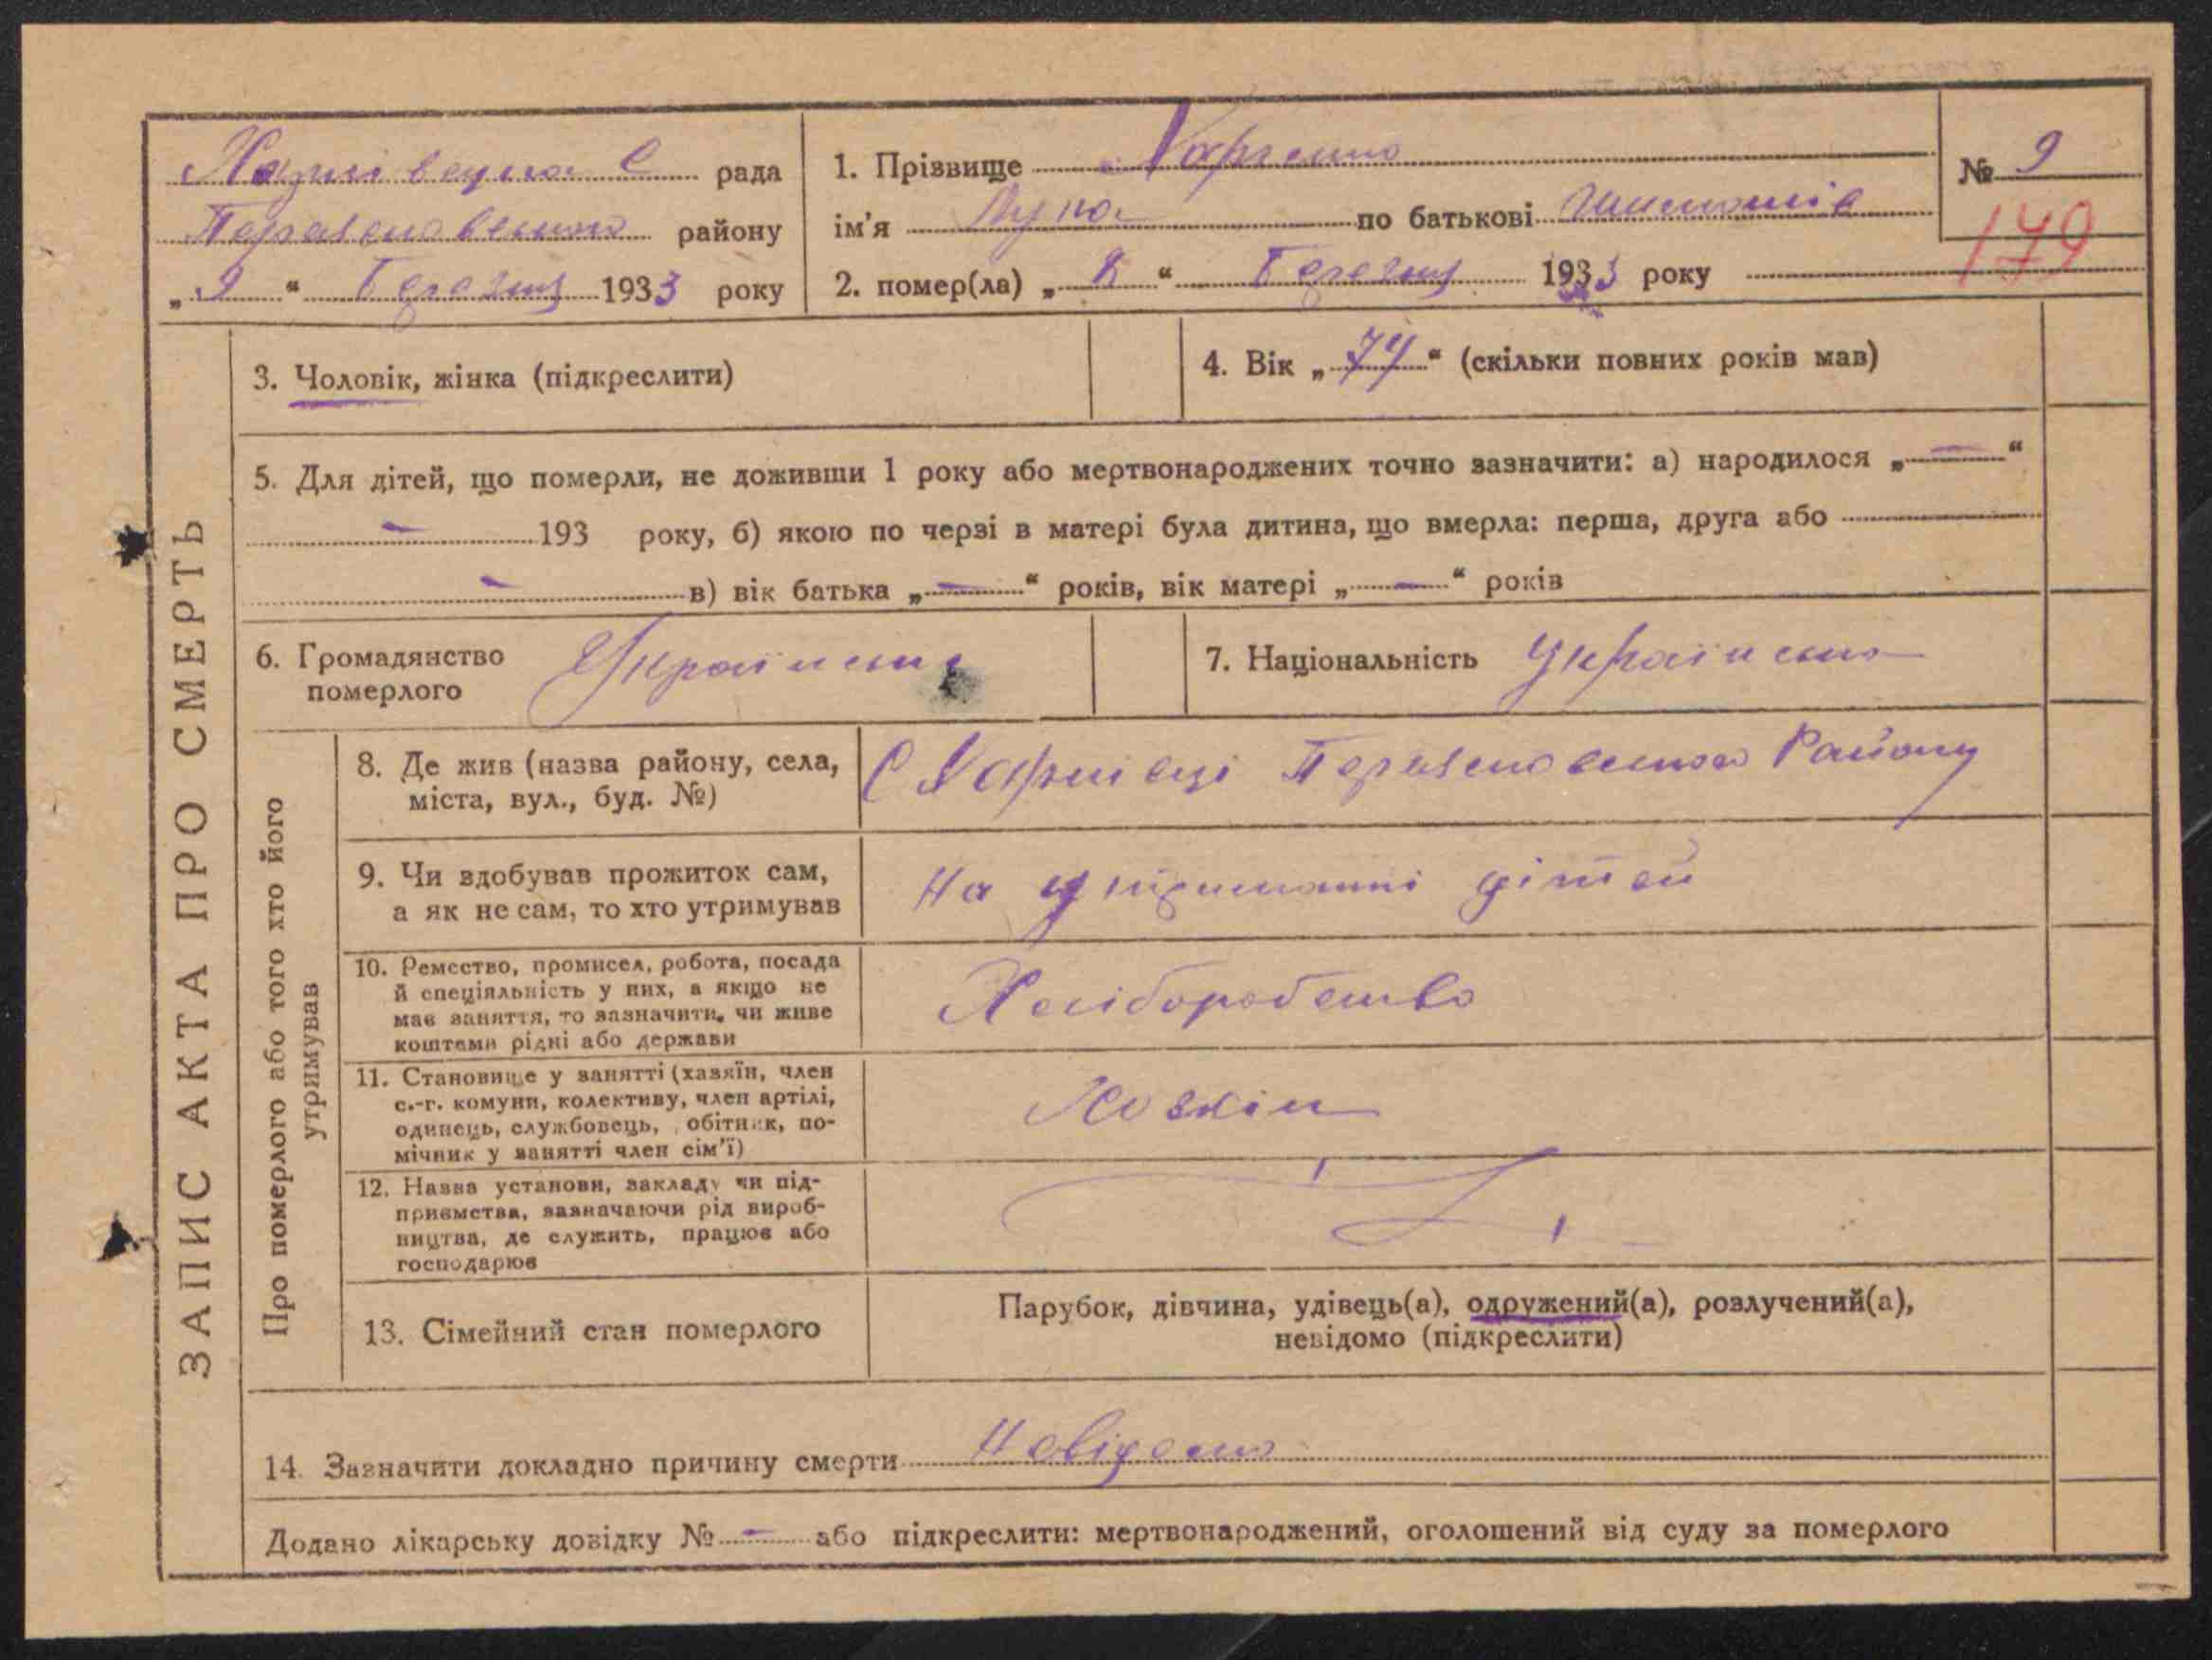 Харківецька С рада
Переяславського району
„ 9 “ Березня 1933 року
1. Прізвище Харченко
ім'я Лука по батькові
2. помер(ла) „ 8 “ Березня 1933 року
№ 9
179
ЗАПИС АКТА ПРО СМЕРТЬ
3. Чоловік, жінка (підкреслити)
4. Вік „ 74 “ (скільки повних років мав)
5. Для дітей, що померли, не доживши 1 року або мертвонароджених точно зазначити: а) народилося „ — “
— 193 року, б) якою по черзі в матері була дитина, що вмерла: перша, друга або
— в) вік батька „ — “ років, вік матері „ — “ років
6. Громадянство
померлого
Українське
7. Національність Українська
Про померлого або того хто його
утримував
8. Де жив (назва району, села,
міста, вул., буд. №)
С Харківці Переяславського Району
9. Чи здобував прожиток сам,
а як не сам, то хто утримував
На утриманні дітей
10. Ремество, промисел, робота, посада
й спеціяльність у них, а якщо не
має заняття, то зазначити, чи живе
коштами рідні або держави
Хліборобство
11. Становище у занятті (хазяїн, член
с.-г. комуни, колективу, член артілі,
одинець, службовець, обітник, по-
мічник у занятті член сім'ї)
12. Назва установи, закладу чи під-
приємства, зазначаючи рід вироб-
ництва, де служить, працює або
господарює
13. Сімейний стан померлого
Парубок, дівчина, удівець(а), одружений(а), розлучений(а),
невідомо (підкреслити)
14. Зазначити докладно причину смерти Невідомо
Додано лікарську довідку № — або підкреслити: мертвонароджений, оголошений від суду за померлого